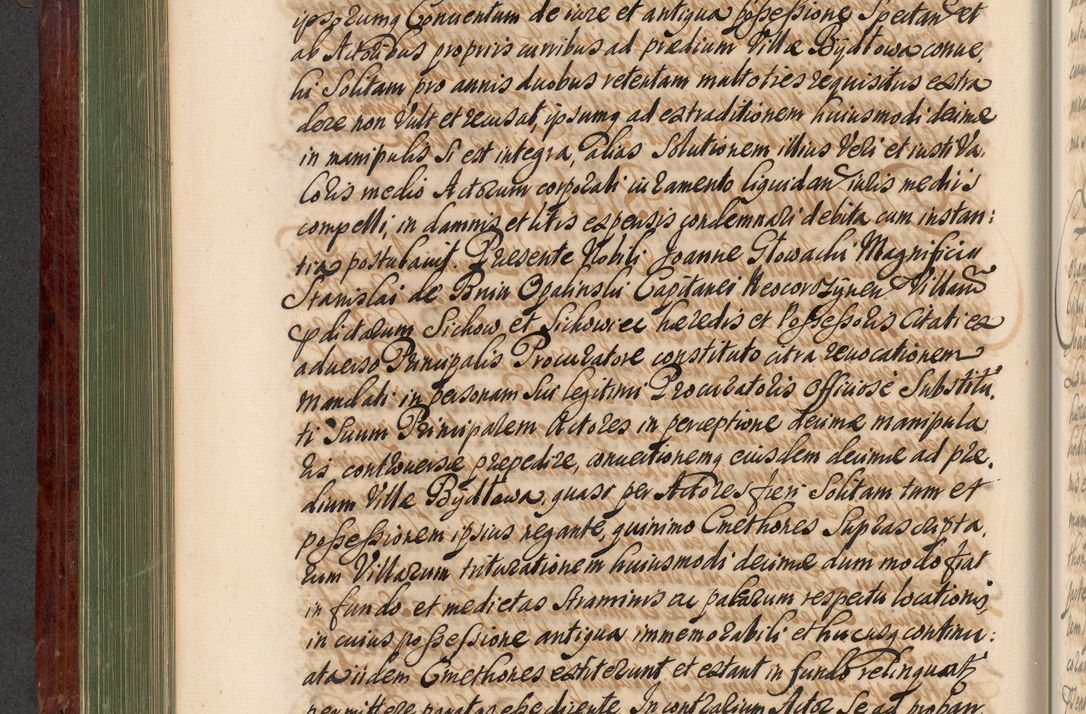 ipsorumq Conuentum de iure et antiqua possessione Spectan et
ab Actoribus propriis curribus ad prædium Villæ Bydłowa conue,
hi Solitam pro annis duobus retentam multoties requisitus extra
dere non Vult et recusat, ipsumq ad extraditionem huiusmodi decimæ
in manipulis si est integra, alias Solutionem illius Veri et iusti Va,
loris medio Actorum corporali iuramento liquidan iuris mediis
compelli, in damnis et litis expensis condemnari debita cum instan:
tia postulauit. Præsente Nobili Joanne Słowacki Magnifici
Stanislai de Bnin Opalinski Capitanei Neocorczynen Villarū
p̱dictarum Sichow et Sichowiec hæredis et Possessoris Citati ex
aduerso Principalis Procuratore constituto citra reuocationem
mandati in personam sui legitimi Procuratoris Officiose Substitu,
ti Suum Principalem Actores in perceptione decimæ manipula
ris controuersæ præpedire, conuectionemq eiusdem decimæ ad præ,
dium Villæ Bydłowa, quasi per Actores fieri Solitam tum et
possessionem ipsius negante, quinimo Cmethones Suprascripta,
rum Villarum triturationem huiusmodi decimæ dum modo fiat
in fundo et medietas straminis ac palearum respectu locationis,
in cuius possessione antiqua immemorabili et hucusq continu:
ata iidem Cmethones extiterunt et extant in fundo relinquat
permittere paratos esse dicente. In contrarium Actor Se ad proban